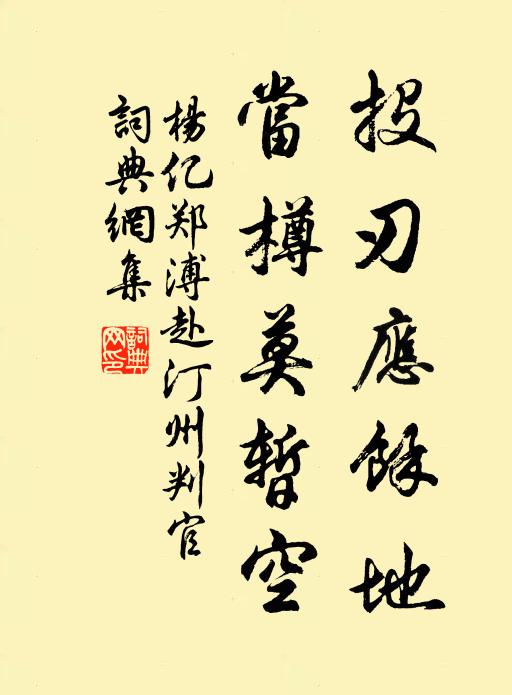 投刃應餘地
當樽莫暫空
楊亿郑溥赴汀州判官
詞典網集
詞典网印